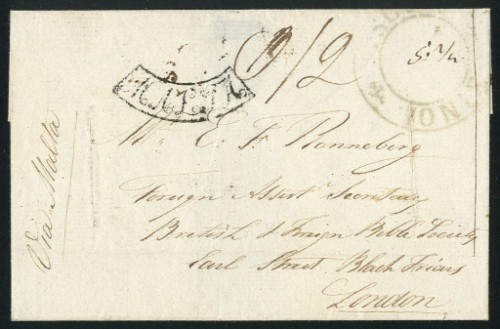 2/2
MALTA
Mr. E. F. Ronneberg
Foreign Assist Secretary
British & Foreign Bible Society
Earl Street Black Friars
London
Via Malta